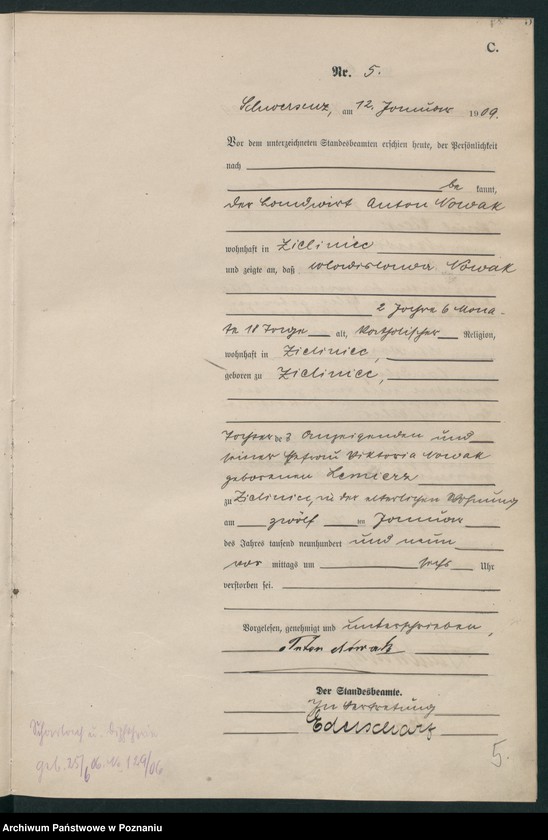 C.
Nr. 5.
Schwersenz, am 12. Januar 1909.
Vor dem unterzeichneten Standesbeamten erschien heute, der Persönlichkeit
nach
be kannt,
der Landwirt Anton Nowak
wohnhaft in Zieliniec
und zeigte an, daß Wladislawa Nowak
2 Jahre 6 Mona-
te 18 Tage alt, katholischer Religion,
wohnhaft in Zieliniec,
geboren zu Zieliniec,
Tochter des Anzeigenden und
seiner Ehefrau Viktoria Nowak
geborenen
zu Zieliniec, in der elterlichen Wohnung
am zwölf ten Januar
des Jahres tausend neunhundert und neun
vor mittags um sechs Uhr
verstorben sei.
Vorgelesen, genehmigt und unterschrieben,
Anton Nowak
Der Standesbeamte.
In Vertretung
geb. 25/6 06. N. 129/06
5.
Archiwum Państwowe w Poznaniu